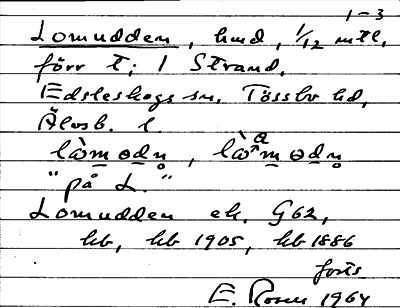 1-3
Lomudden, hmd, 1/12 mtl,
förr t; 1 Strand,
Edsleskogs sn, Tössbo hd,
Älvsb. l.
"på L."
Lomudden ek. G62,
kb, kb 1905, kb 1886
forts
E. Rosen 1964